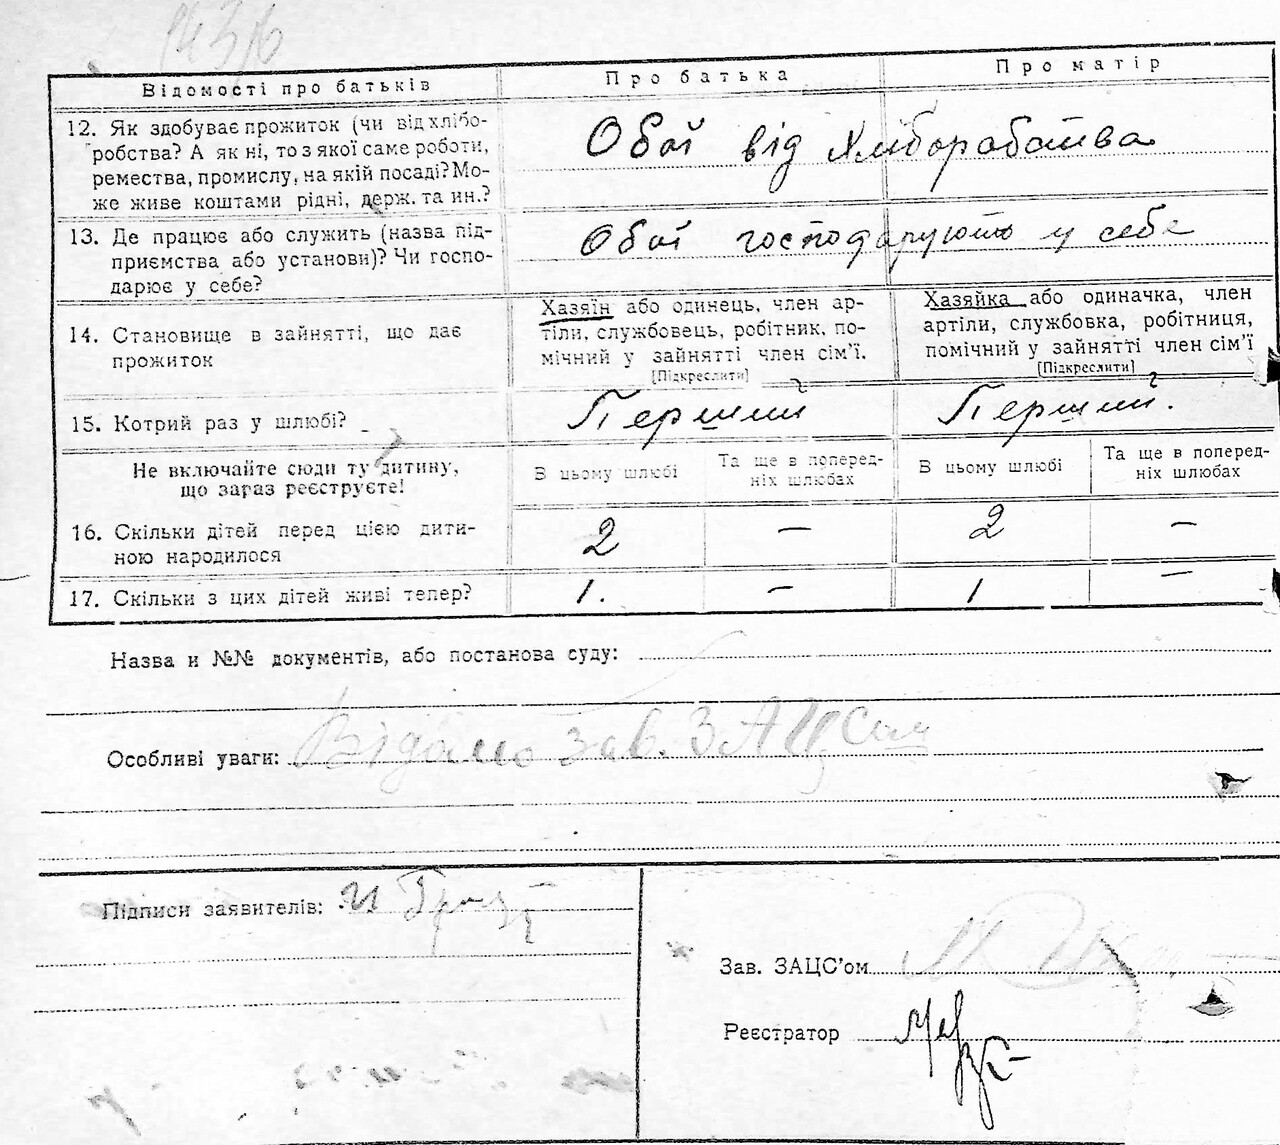 Відомості про батьків
Про батька
Про матір
12. Як здобуває прожиток (чи від хлібо-
робства? А як ні, то з якої саме роботи,
ремества, промислу, на якій посаді? Мо-
же живе коштами рідні, держ. та ин.?
Обої від Хліборобства
13. Де працює або служить (назва під-
приємства або установи)? Чи госпо-
дарює у себе?
Обої господарують у себе
14. Становище в зайнятті, що дає
прожиток
Хазяїн або одинець, член ар-
тіли, службовець, робітник, по-
мічний у зайнятті член сім'ї.
[Підкреслити]
Хазяйка або одиначка, член
артіли, службовка, робітниця,
помічний у зайнятті член сім'ї
[Підкреслити]
15. Котрий раз у шлюбі?
Перший
Перший.
Не включайте сюди ту дитину,
що зараз реєструєте!
В цьому шлюбі
Та ще в поперед-
ніх шлюбах
В цьому шлюбі
Та ще в поперед-
ніх шлюбах
16. Скільки дітей перед цією дити-
ною народилося
2
—
2
—
17. Скільки з цих дітей живі тепер?
1.
—
1
—
Назва и №№ документів, або постанова суду:
Особливі уваги: Відомо зав. ЗАЦСом
Підписи заявителів:
Зав. ЗАЦС'ом
Реєстратор